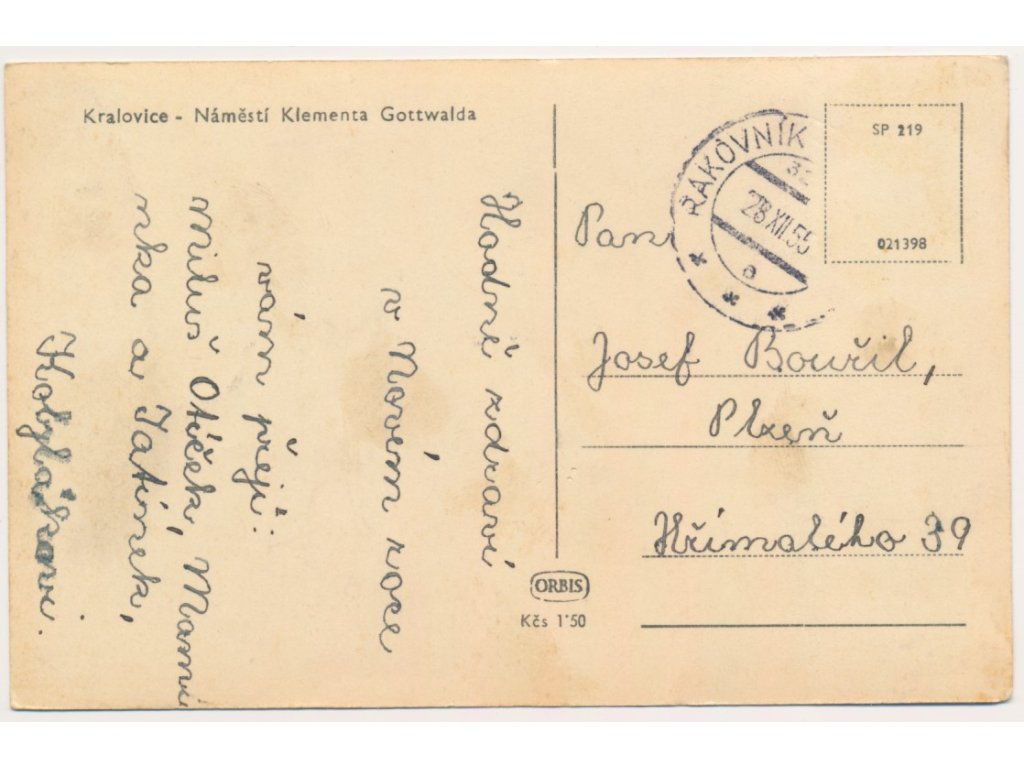 Kralovice - Náměstí Klementa Gottwalda
Hodně zdraví
v Novém roce
vám přejí:
Miluš Otíček, Mami
nka a Tatínek,
Kobyláškovi.
RAKOVNÍK
28.XII.55
SP 219
021398
Pan
Josef Bouřil,
Plzeň
Hřímalého 39
ORBIS
Kčs 1'50